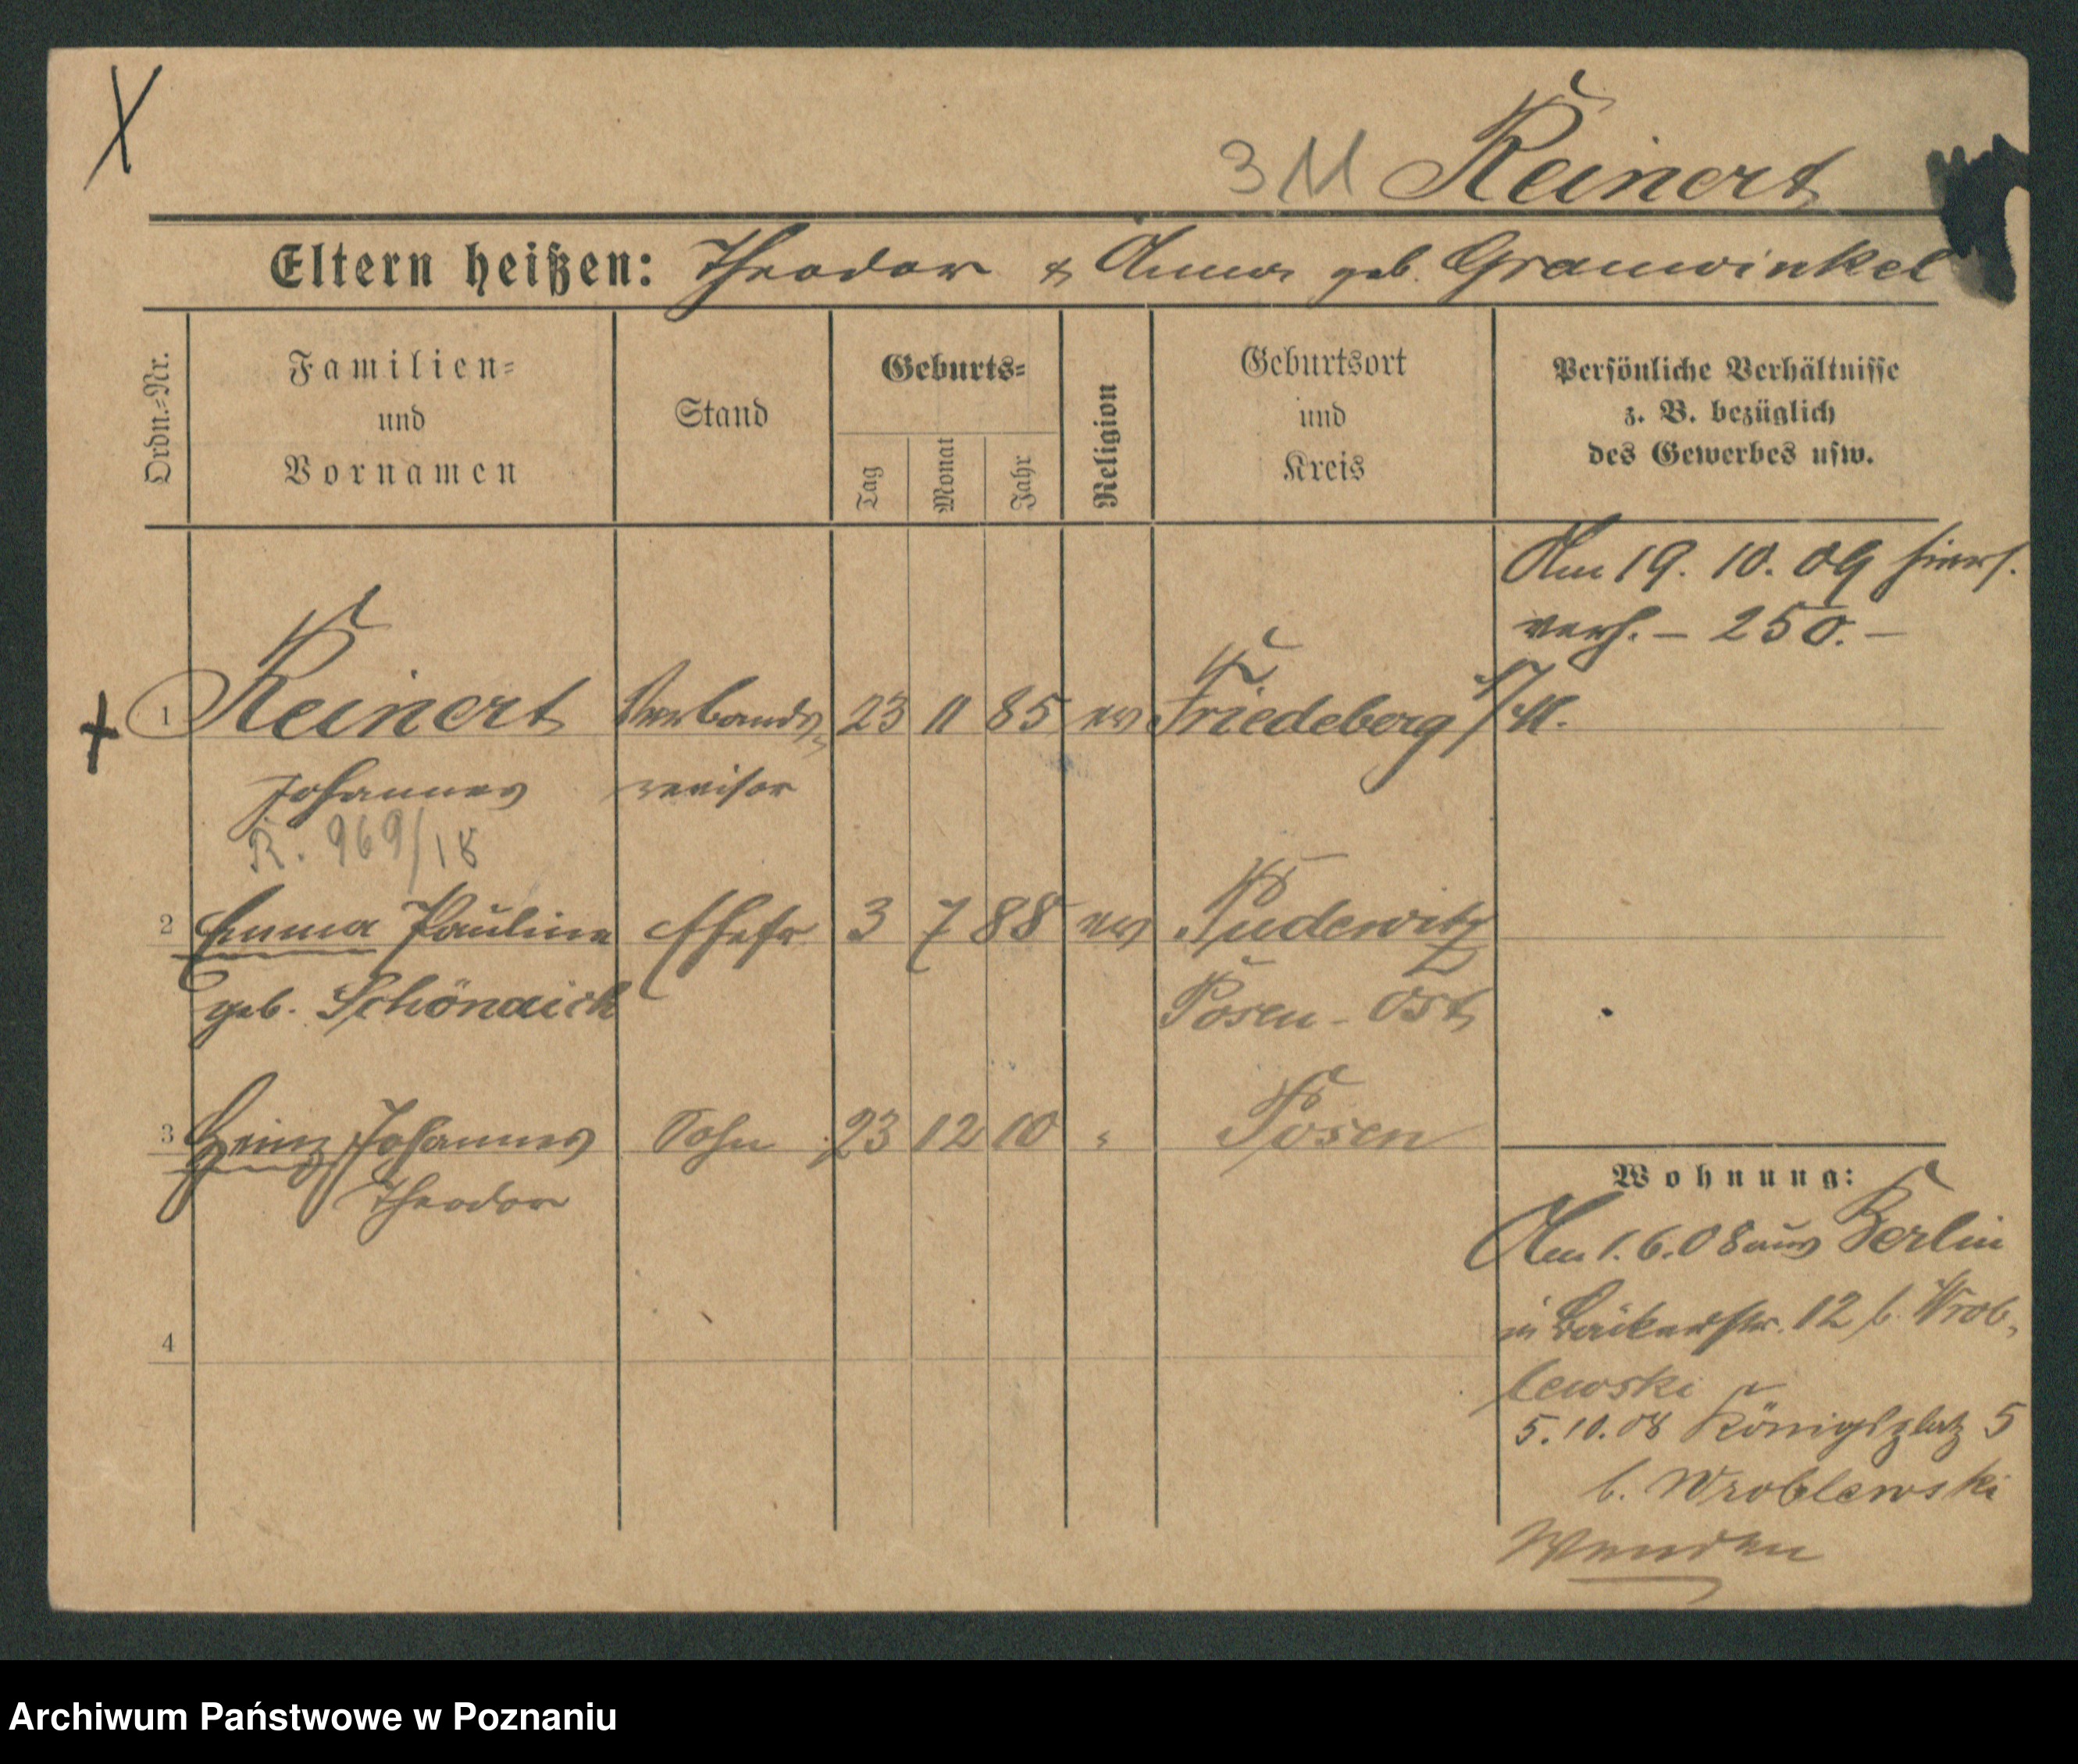 X
3 M Reinert
Eltern heißen: Theodor & Anna geb. Granwinkel
Ordn.-Nr.
Familien-
und
Vornamen
Stand
Geburts-
Tag
Monat
Jahr
Religion
Geburtsort
und
Kreis
Persönliche Verhältnisse
z. B. bezüglich
des Gewerbes usw.
Am 19. 10. 09 hiers.
verh. – 250. –
1 Reinert Verbands- 23 11 85 ev Friedeberg /M.
Johannes revisor
R. 969/18
2 Emma Pauline Ehefr 3 7 88 ev Pudewitz
geb. Schönaich Posen - Ost
3 Heinz Johannes Sohn 23 12 10 " Posen
Theodor
4
Wohnung:
Am 1. 6. 08 aus Berlin
in Bäckerstr. 12 b. Wrob-
lewski
5. 10. 08 Königsplatz 5
b. Wroblewski
Wenden
Archiwum Państwowe w Poznaniu